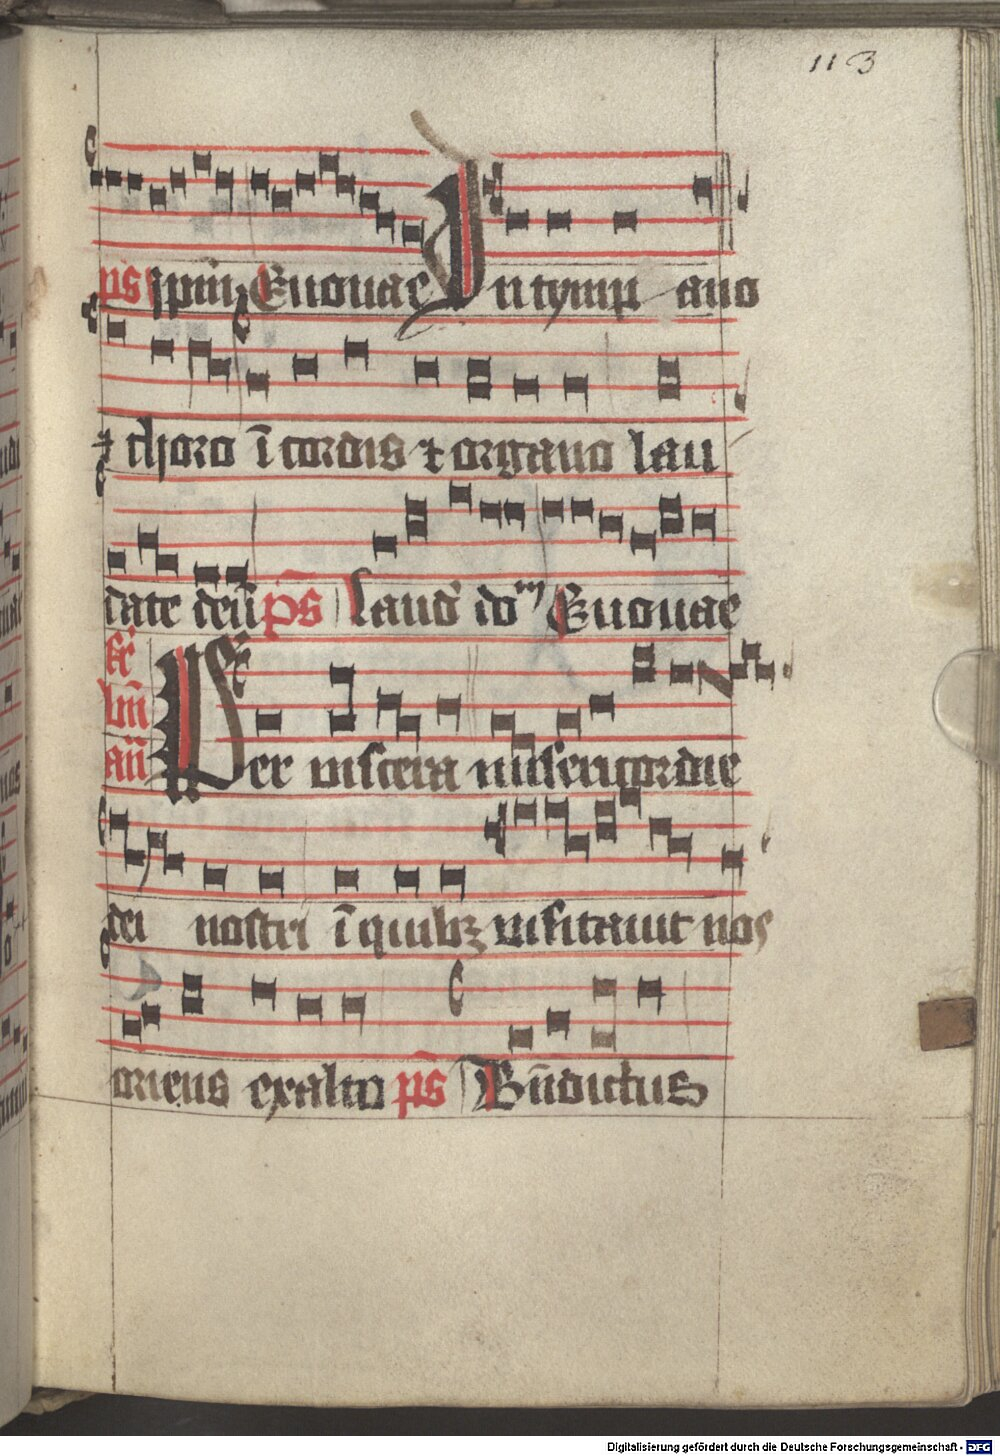 113
ps ip̄m Euouae In tymp ano
⁊ choro ī cordis ⁊ organo lau
date deū ps Laud do^m Euouae
fe
Per viscera misericordie
añ
dei nostri ī quibꝫ visitauit nos
oriens exalto ps Bn̄dictus
Digitalisierung gefördert durch die Deutsche Forschungsgemeinschaft - DFG